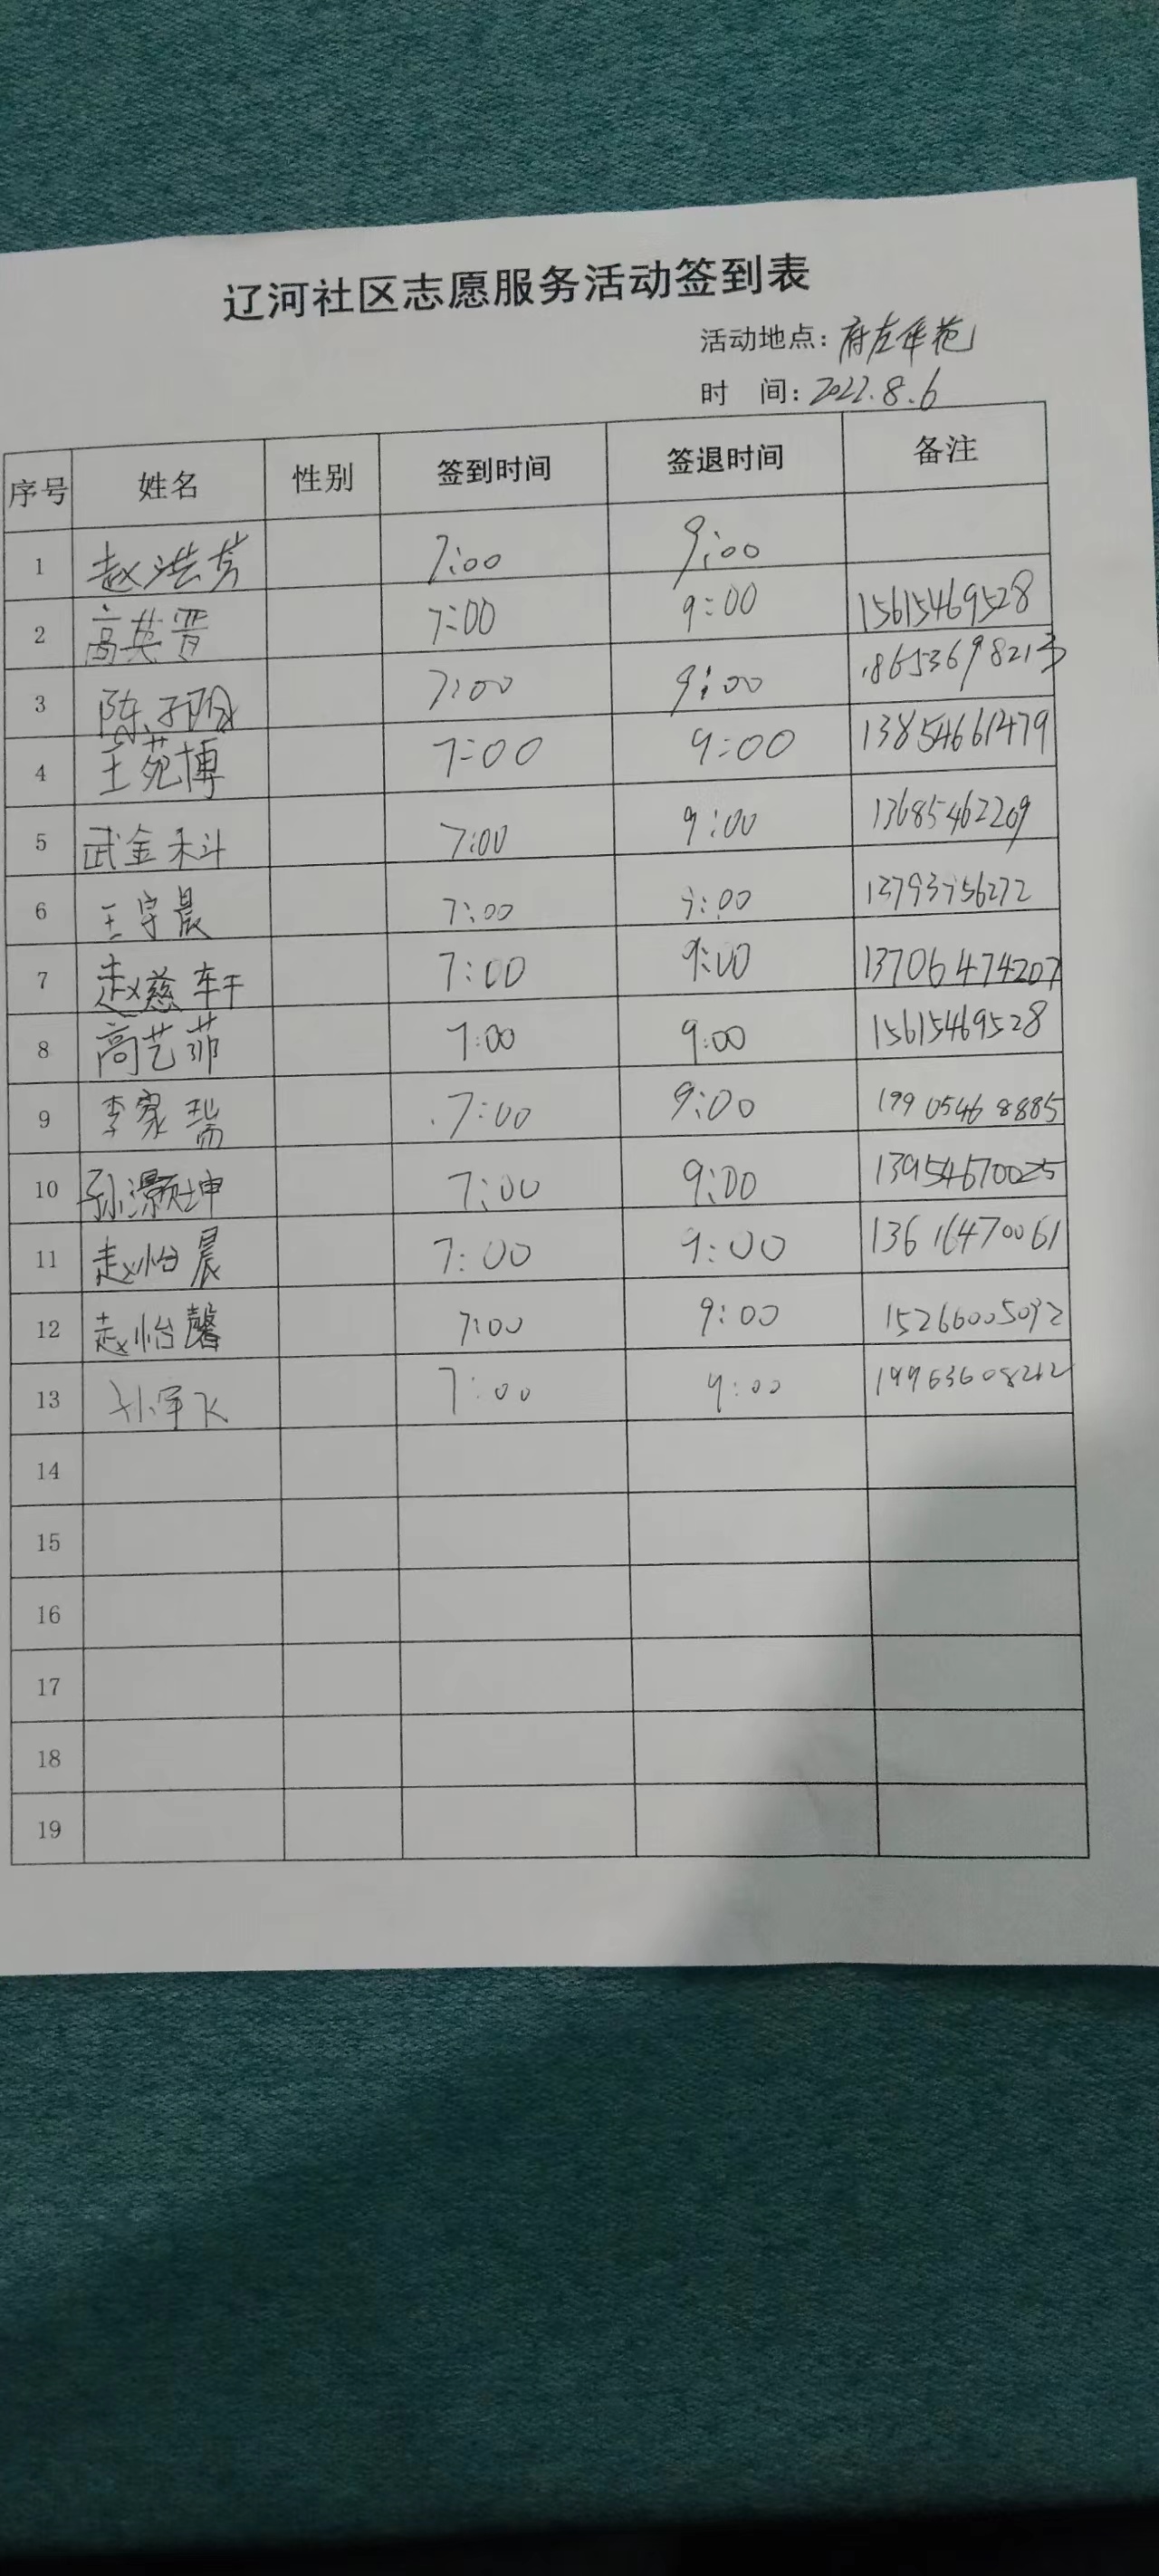 辽河社区志愿服务活动签到表
活动地点：府左华苑
时 间：2022.8.6
序号 姓名 性别 签到时间 签退时间 备注
1 赵洪芳 7:00 9:00
2 高英晋 7:00 9:00 15615469528
3 陈子阳 7:00 9:00
4 王苑博 7:00 9:00 13854661479
5 武金科 7:00 9:00 13685462209
6 王宇晨 7:00 9:00
7 赵慈轩 7:00 9:00 13706474207
8 高艺菲 7:00 9:00 15615469528
9 李家瑞 7:00 9:00 19905468885
10 孙灏坤 7:00 9:00 13954670025
11 赵怡晨 7:00 9:00 13616470061
12 赵怡馨 7:00 9:00 15266005092
13 孙宇飞 7:00 9:00
14
15
16
17
18
19